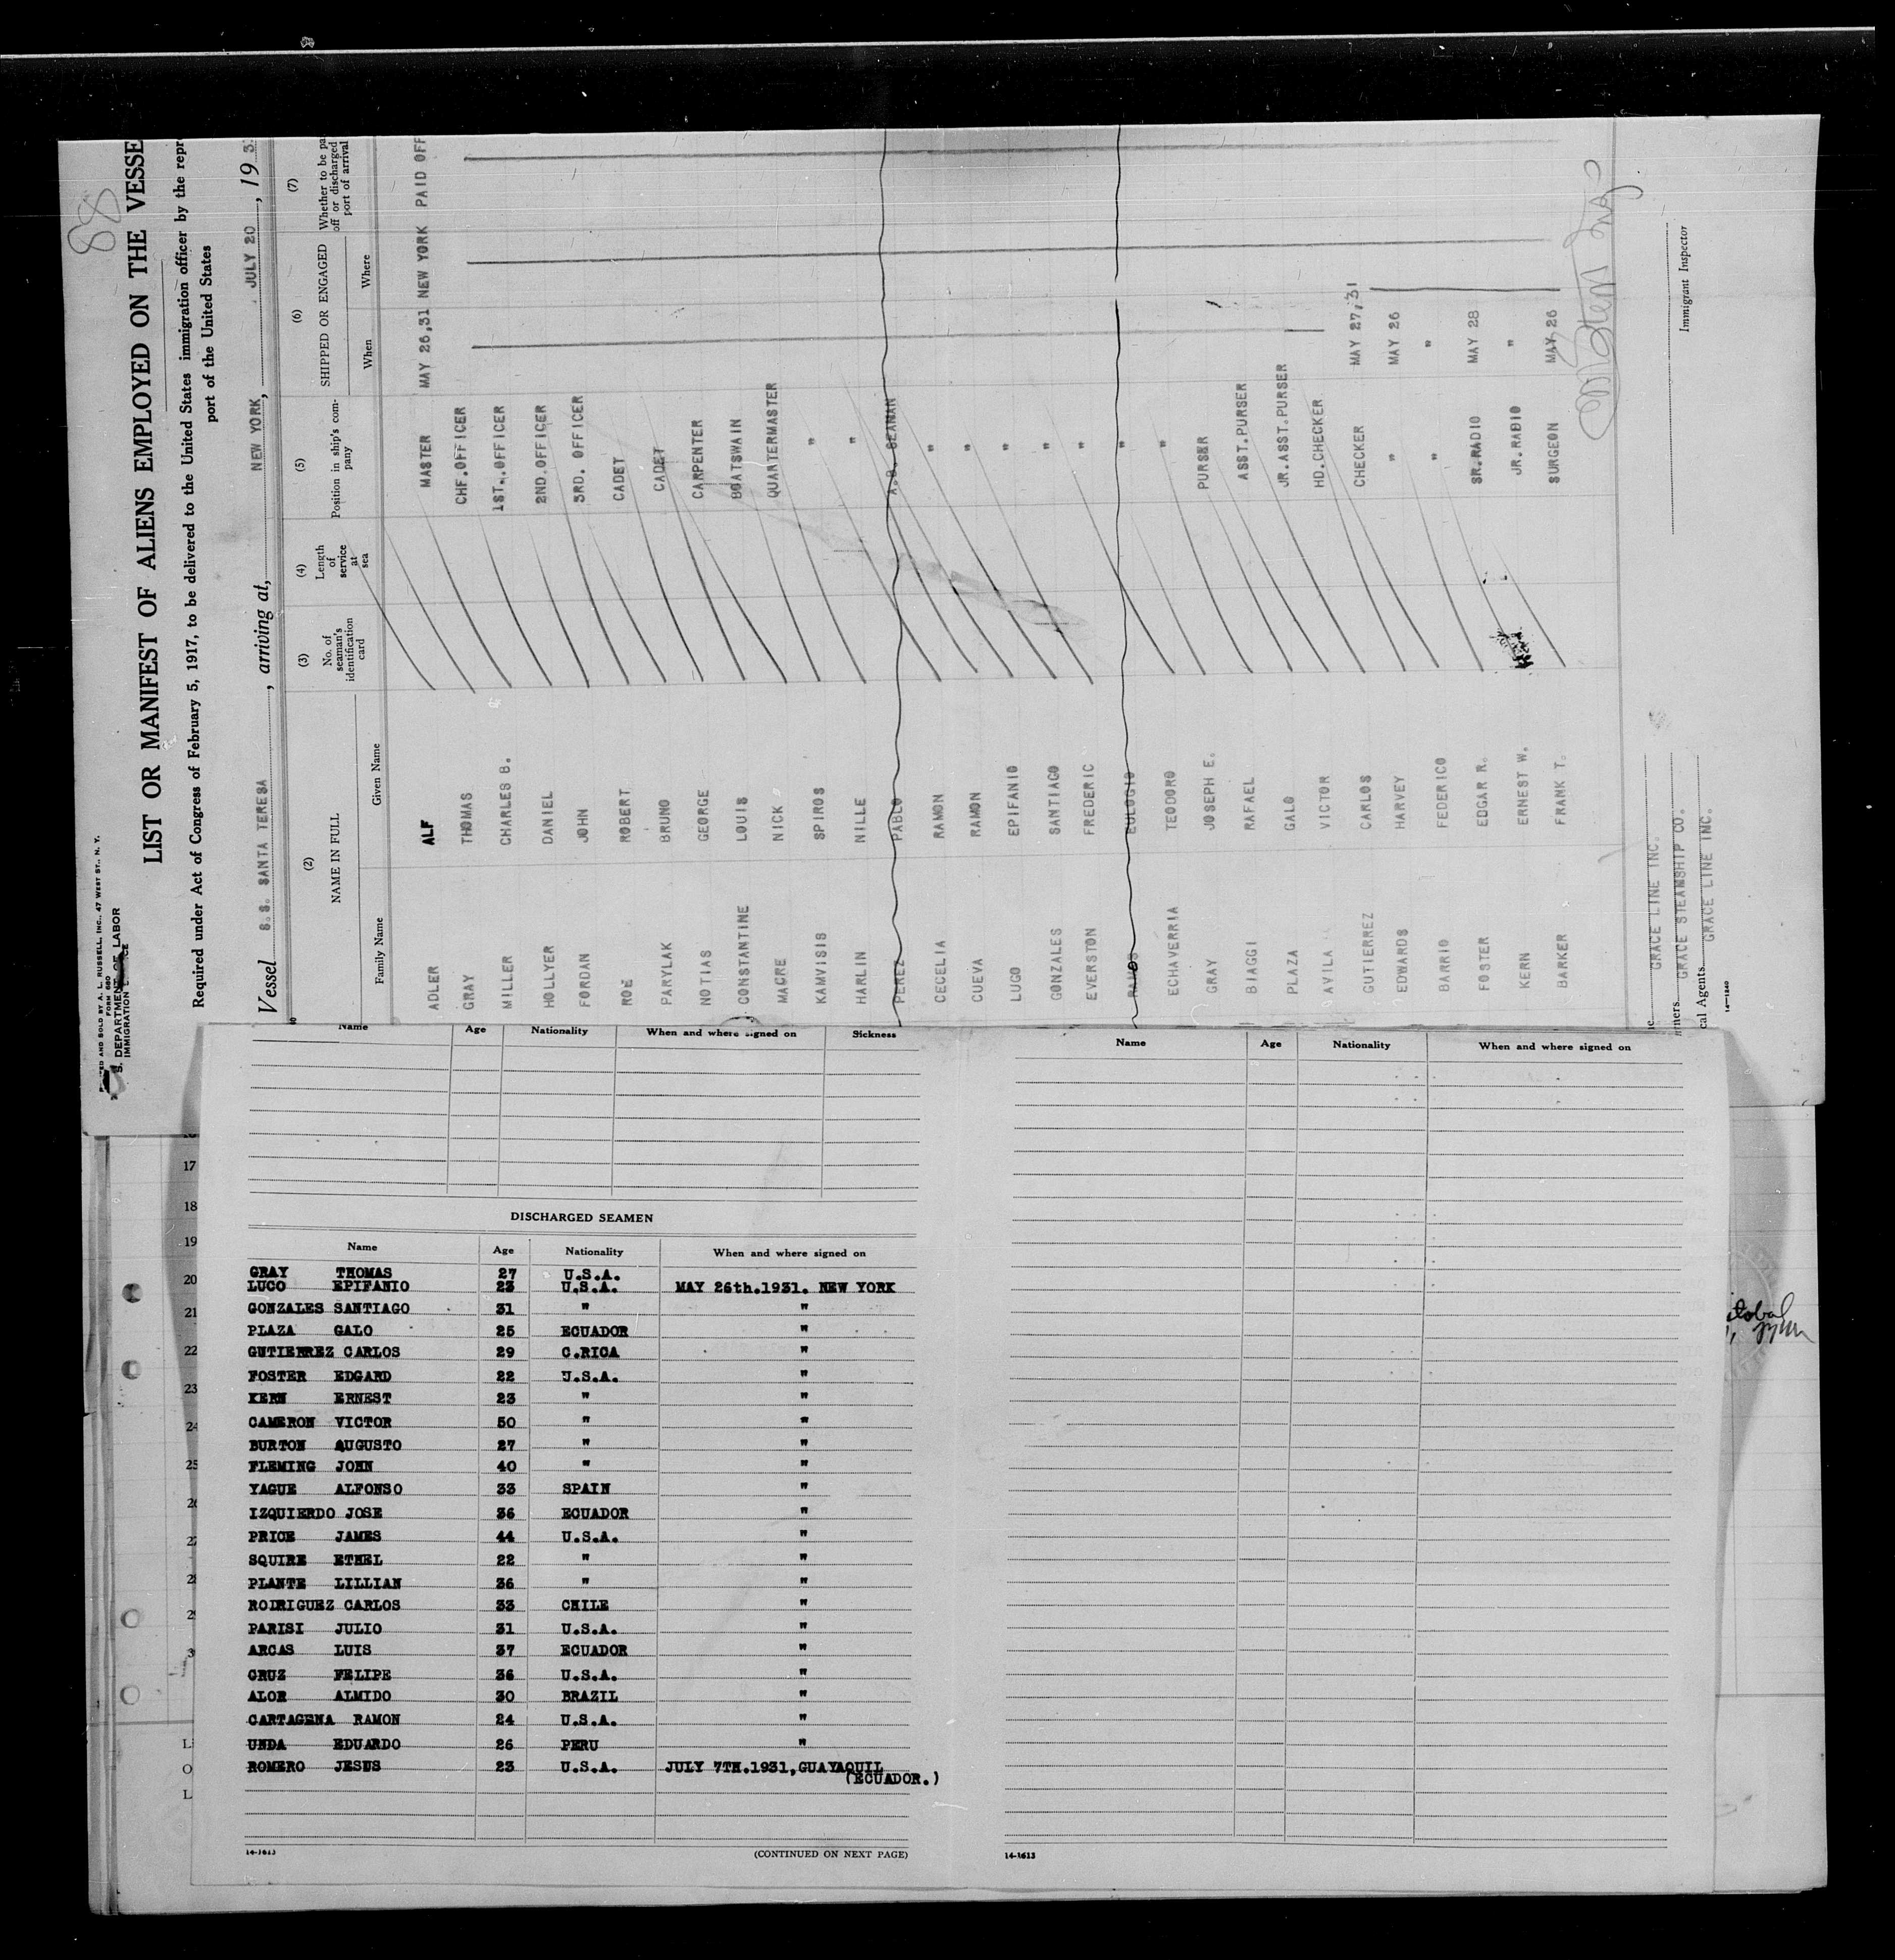 88
PRINTED AND SOLD BY A. L. RUSSELL, INC., 47 WEST ST., N. Y.
FORM 680
S. DEPARTMENT OF LABOR
IMMIGRATION
LIST OR MANIFEST OF ALIENS EMPLOYED ON THE VESSE
Required under Act of Congress of February 5, 1917, to be delivered to the United States immigration officer by the repr
port of the United States
Vessel S.S. SANTA TERESA, arriving at, NEW YORK, JULY 20, 193
(2) (3) (4) (5) (6) (7)
NAME IN FULL No. of seaman's identification card Length of service at sea Position in ship's company SHIPPED OR ENGAGED Whether to be pa off or discharged port of arrival
Family Name Given Name When Where
ADLER ALF MASTER MAY 26,31 NEW YORK PAID OFF
GRAY THOMAS CHF.OFFICER
MILLER CHARLES B. 1ST.OFFICER
HOLLYER DANIEL 2ND.OFFICER
FORDAN JOHN 3RD. OFFICER
ROE ROBERT CADET
PARYLAK BRUNO CADET
NOTIAS GEORGE CARPENTER
CONSTANTINE LOUIS BOATSWAIN
MACRE NICK QUARTERMASTER
KAMVISIS SPIROS "
HARLIN NILLE "
PEREZ PABLO A.B. SEAMAN
CECELIA RAMON "
CUEVA RAMON "
LUGO EPIFANIO "
GONZALES SANTIAGO "
EVERSTON FREDERIC "
RAMOS EULOGIO "
ECHAVERRIA TEODORO "
GRAY JOSEPH E. PURSER
BIAGGI RAFAEL ASST.PURSER
PLAZA GALO JR.ASST.PURSER
AVILA VICTOR HD.CHECKER
GUTIERREZ CARLOS CHECKER MAY 27,31
EDWARDS HARVEY " MAY 26
BARRIO FEDERICO " "
FOSTER EDGAR R. SR.RADIO MAY 28
KERN ERNEST W. JR.RADIO "
BARKER FRANK T. SURGEON MAY 26
Immigrant Inspector
GRACE LINE INC.
ners GRACE STEAMSHIP CO.
cal Agents GRACE LINE INC.
14—1240
Name Age Nationality When and where signed on Sickness
DISCHARGED SEAMEN
Name Age Nationality When and where signed on
GRAY THOMAS 27 U.S.A.
LUCO EPIFANIO 23 U.S.A. MAY 26th.1931. NEW YORK
GONZALES SANTIAGO 31 " "
PLAZA GALO 25 ECUADOR "
GUTIERREZ CARLOS 29 C.RICA "
FOSTER EDGARD 22 U.S.A. "
KERN ERNEST 23 " "
CAMERON VICTOR 50 " "
BURTON AUGUSTO 27 " "
FLEMING JOHN 40 " "
YAGUE ALFONSO 33 SPAIN "
IZQUIERDO JOSE 36 ECUADOR "
PRICE JAMES 44 U.S.A. "
SQUIRE ETHEL 22 " "
PLANTE LILLIAN 36 " "
RODRIGUEZ CARLOS 33 CHILE "
PARISI JULIO 31 U.S.A. "
ARCAS LUIS 37 ECUADOR "
CRUZ FELIPE 36 U.S.A. "
ALOR ALMIDO 30 BRAZIL "
CARTAGENA RAMON 24 U.S.A. "
UNDA EDUARDO 26 PERU "
ROMERO JESUS 23 U.S.A. JULY 7TH.1931,GUAYAQUIL
(ECUADOR.)
14-1613
(CONTINUED ON NEXT PAGE)
Name Age Nationality When and where signed on
14-1613
17
18
19
20
21
22
23
24
25